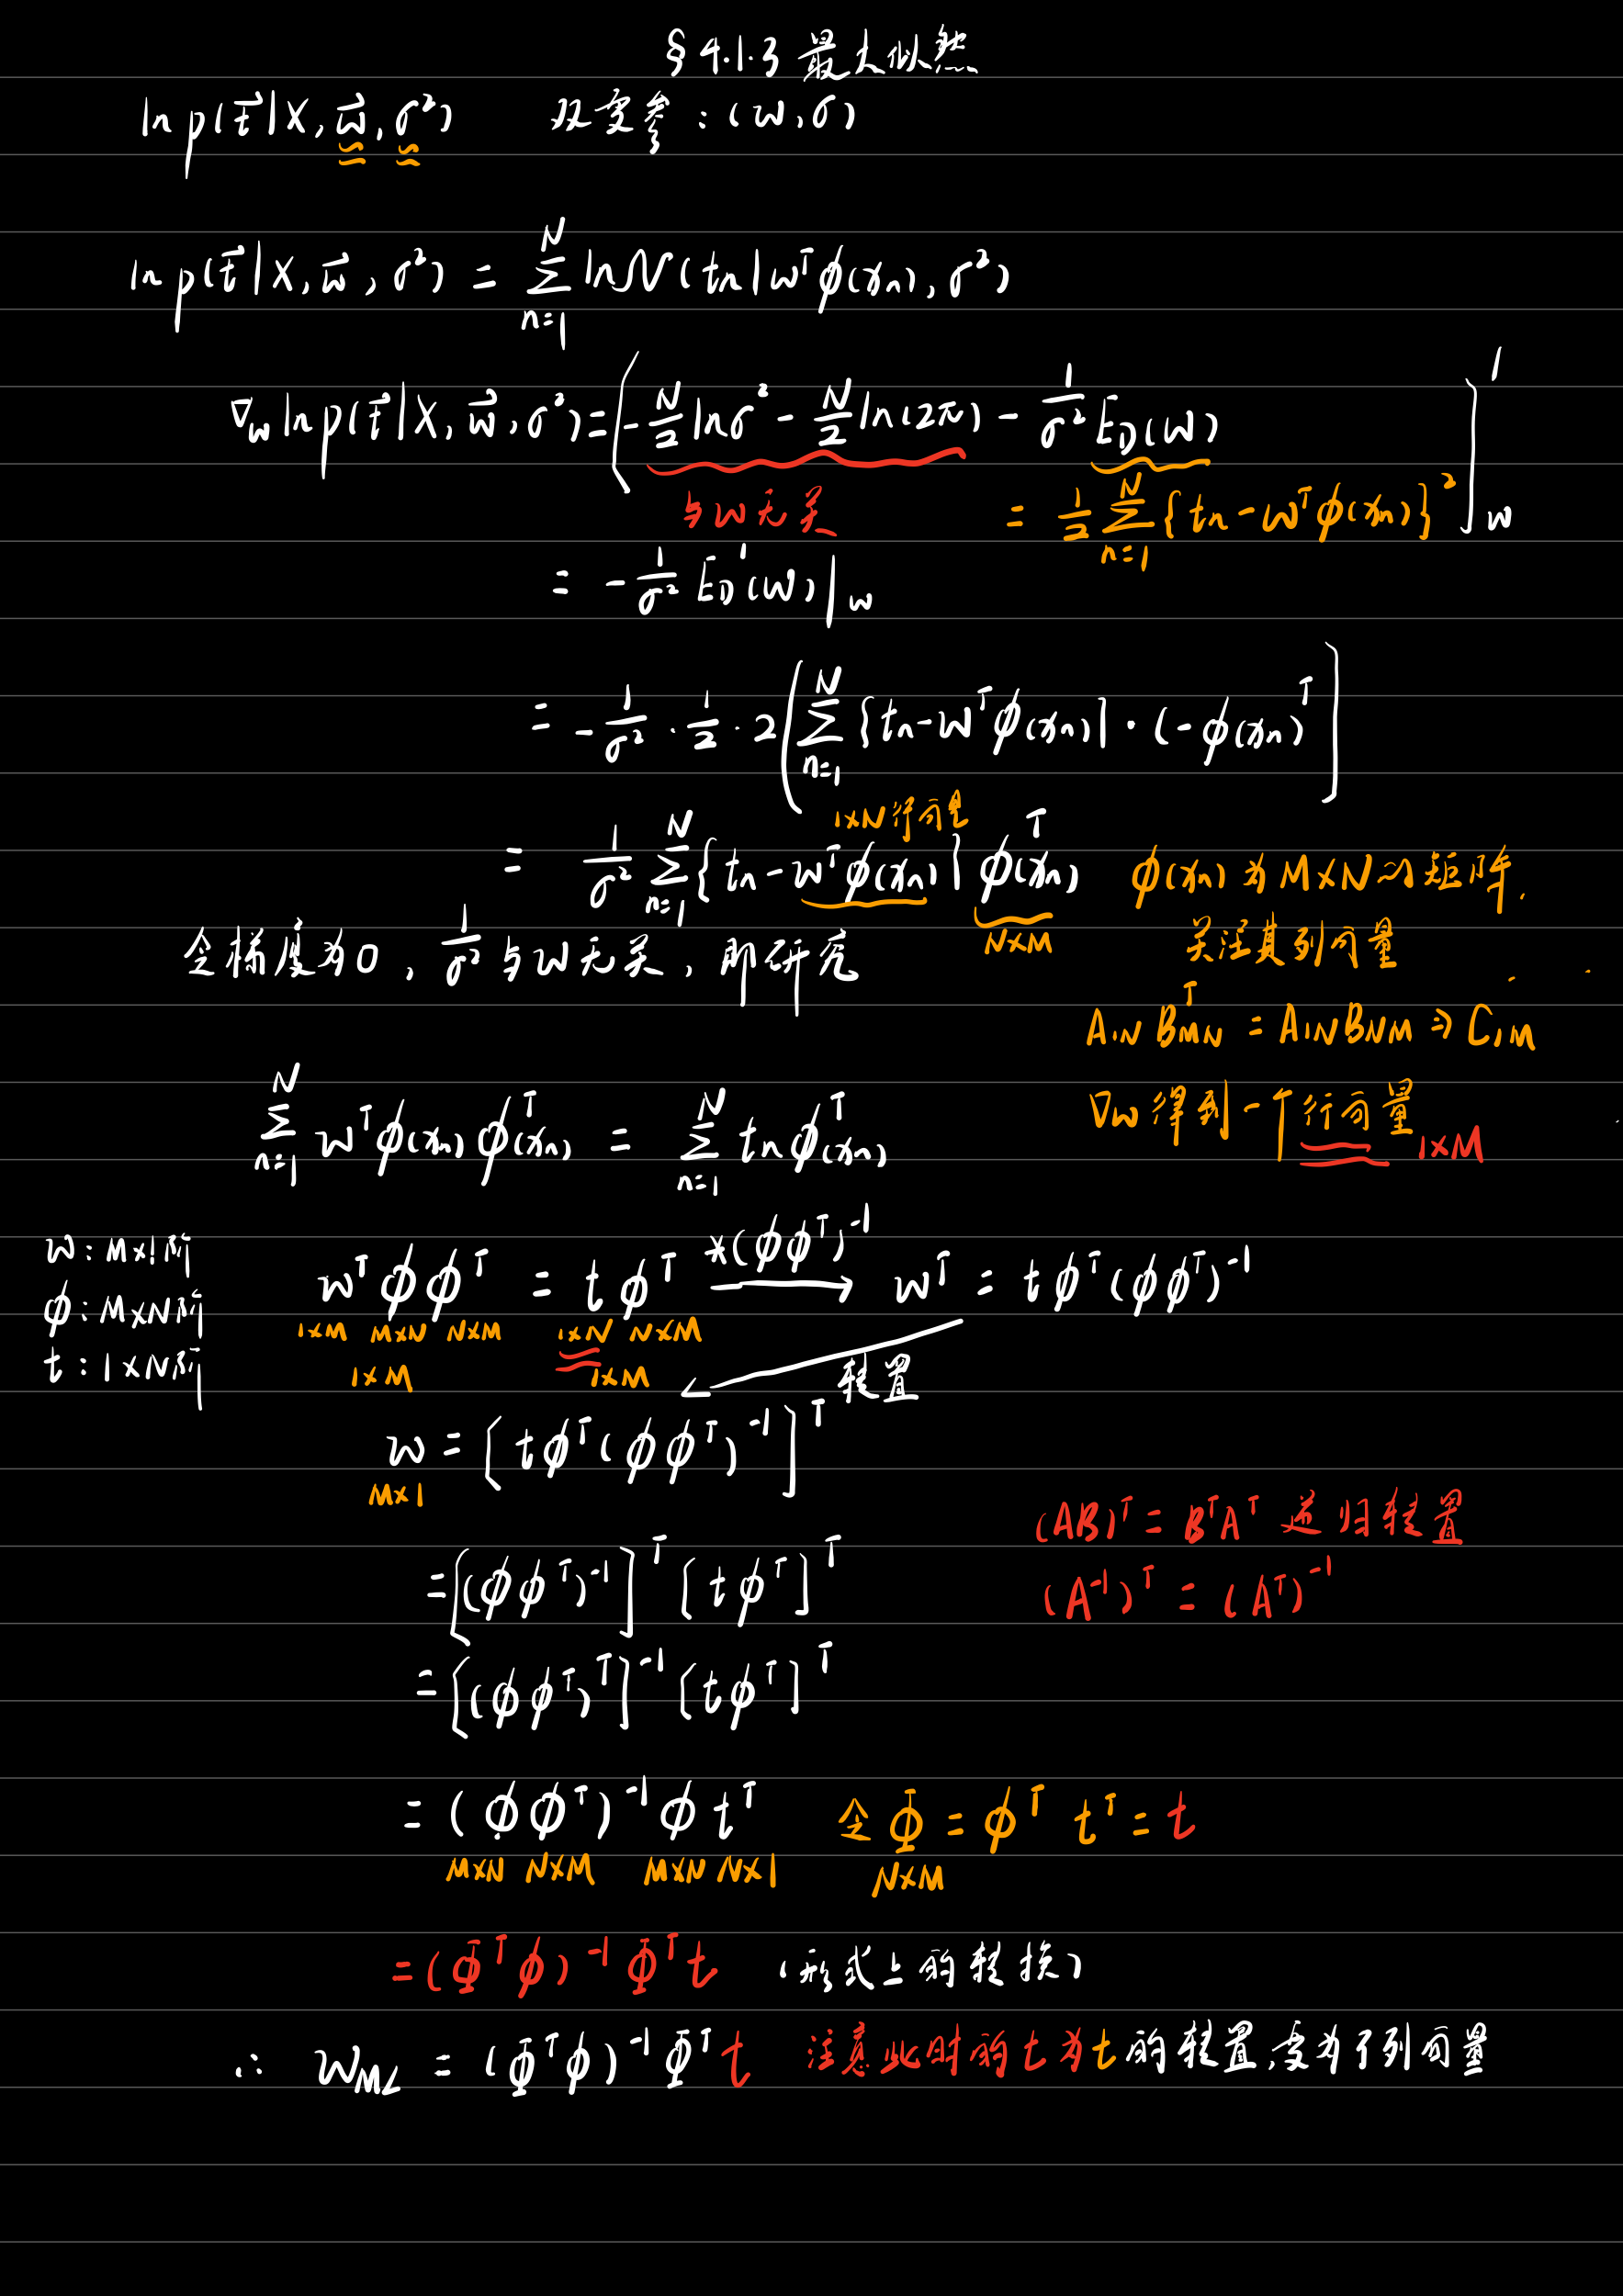 §4.1.3 最大似然
ln p(t⃗|X, w⃗, σ²) 双变参:(w,σ)
ln p(t⃗|X, w⃗, σ²) = Σ_{n=1}^{N} ln N(tn|wᵀφ(xn), σ²)
∇w ln p(t⃗|X, w⃗, σ²) = [-N/2 lnσ² - N/2 ln(2π) - 1/σ² E_D(w)]'_w
与w无关 = 1/2 Σ_{n=1}^{N} {tn - wᵀφ(xn)}²
= -1/σ² E_D'(w)|_w
= -1/σ² · 1/2 · 2 [Σ_{n=1}^{N} {tn - wᵀφ(xn)} · (-φ(xn)ᵀ]
1×N行向量
= 1/σ² Σ_{n=1}^{N} {tn - wᵀφ(xn)} φ(xn)ᵀ φ(xn)为M×N的矩阵.
N×M
令梯度为0, 1/σ² 与w无关, 即研究 关注其列向量
A_{1N} B_{MN}ᵀ = A_{1N} B_{NM} ⇒ C_{1M}
∇w 得到一个行向量 1×M
Σ_{n=1}^{N} wᵀφ(xn)φ(xn)ᵀ = Σ_{n=1}^{N} tn φ(xn)ᵀ
w: M×1阶
φ: M×N阶
t: 1×N阶
wᵀφφᵀ = tφᵀ *(φφᵀ)⁻¹ → wᵀ = tφᵀ(φφᵀ)⁻¹
1×M M×N N×M 1×N N×M
1×M 1×M 转置
w = [tφᵀ(φφᵀ)⁻¹]ᵀ
M×1
(AB)ᵀ = BᵀAᵀ 递归转置
= [(φφᵀ)⁻¹]ᵀ [tφᵀ]ᵀ
(A⁻¹)ᵀ = (Aᵀ)⁻¹
= [(φφᵀ)ᵀ]⁻¹ [tφᵀ]ᵀ
= (φφᵀ)⁻¹φtᵀ 令Φ = φᵀ tᵀ = t
M×N N×M M×N N×1 N×M
= (Φᵀφ)⁻¹Φᵀt (形式上的转换)
∴ w_ML = (Φᵀφ)⁻¹Φᵀt 注意此时的t为t的转置,变为了列向量